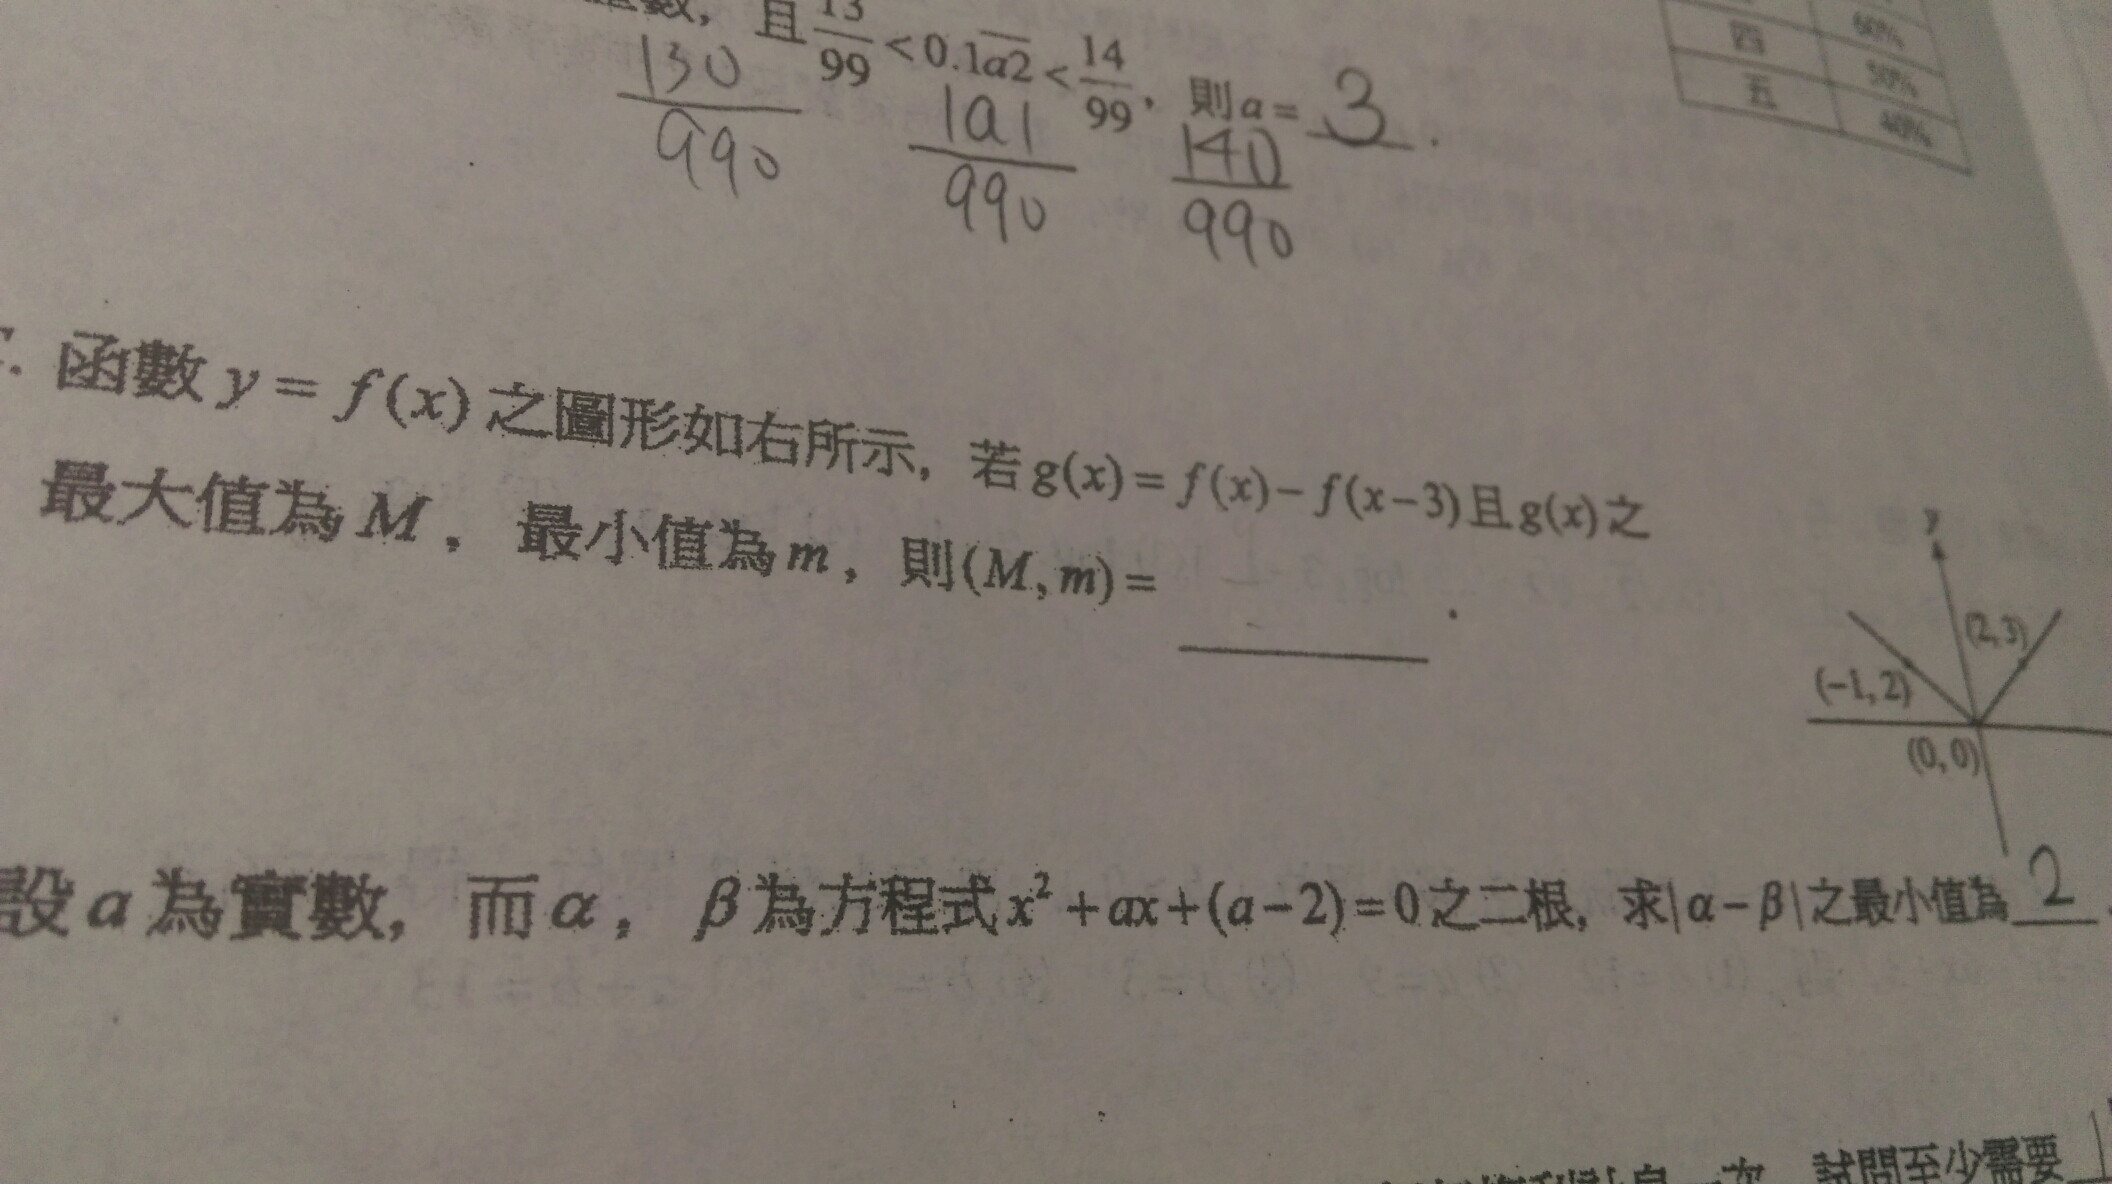 數，且 13/99 < 0.1a̅2̅ < 14/99，則 a = 3．
130/990 1a1/990 140/990
四 60%
五 50%
40%
. 函數 y = f(x) 之圖形如右所示，若 g(x) = f(x) − f(x−3) 且 g(x) 之
最大值為 M，最小值為 m，則 (M, m) = ______．
y
(2,3)
(−1,2)
(0,0)
設 a 為實數，而 α，β 為方程式 x² + ax + (a−2) = 0 之二根，求 |α − β| 之最小值為 2．
一次，試問至少需要